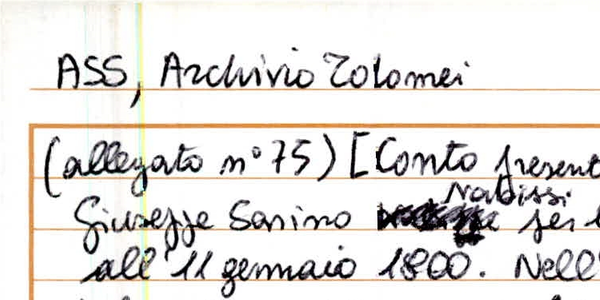 ASS, Archivio Tolomei
(allegato n° 75) [Conto present
Nabissi
Giuseppe Sonino per
all' 11 gennaio 1800. Nell'